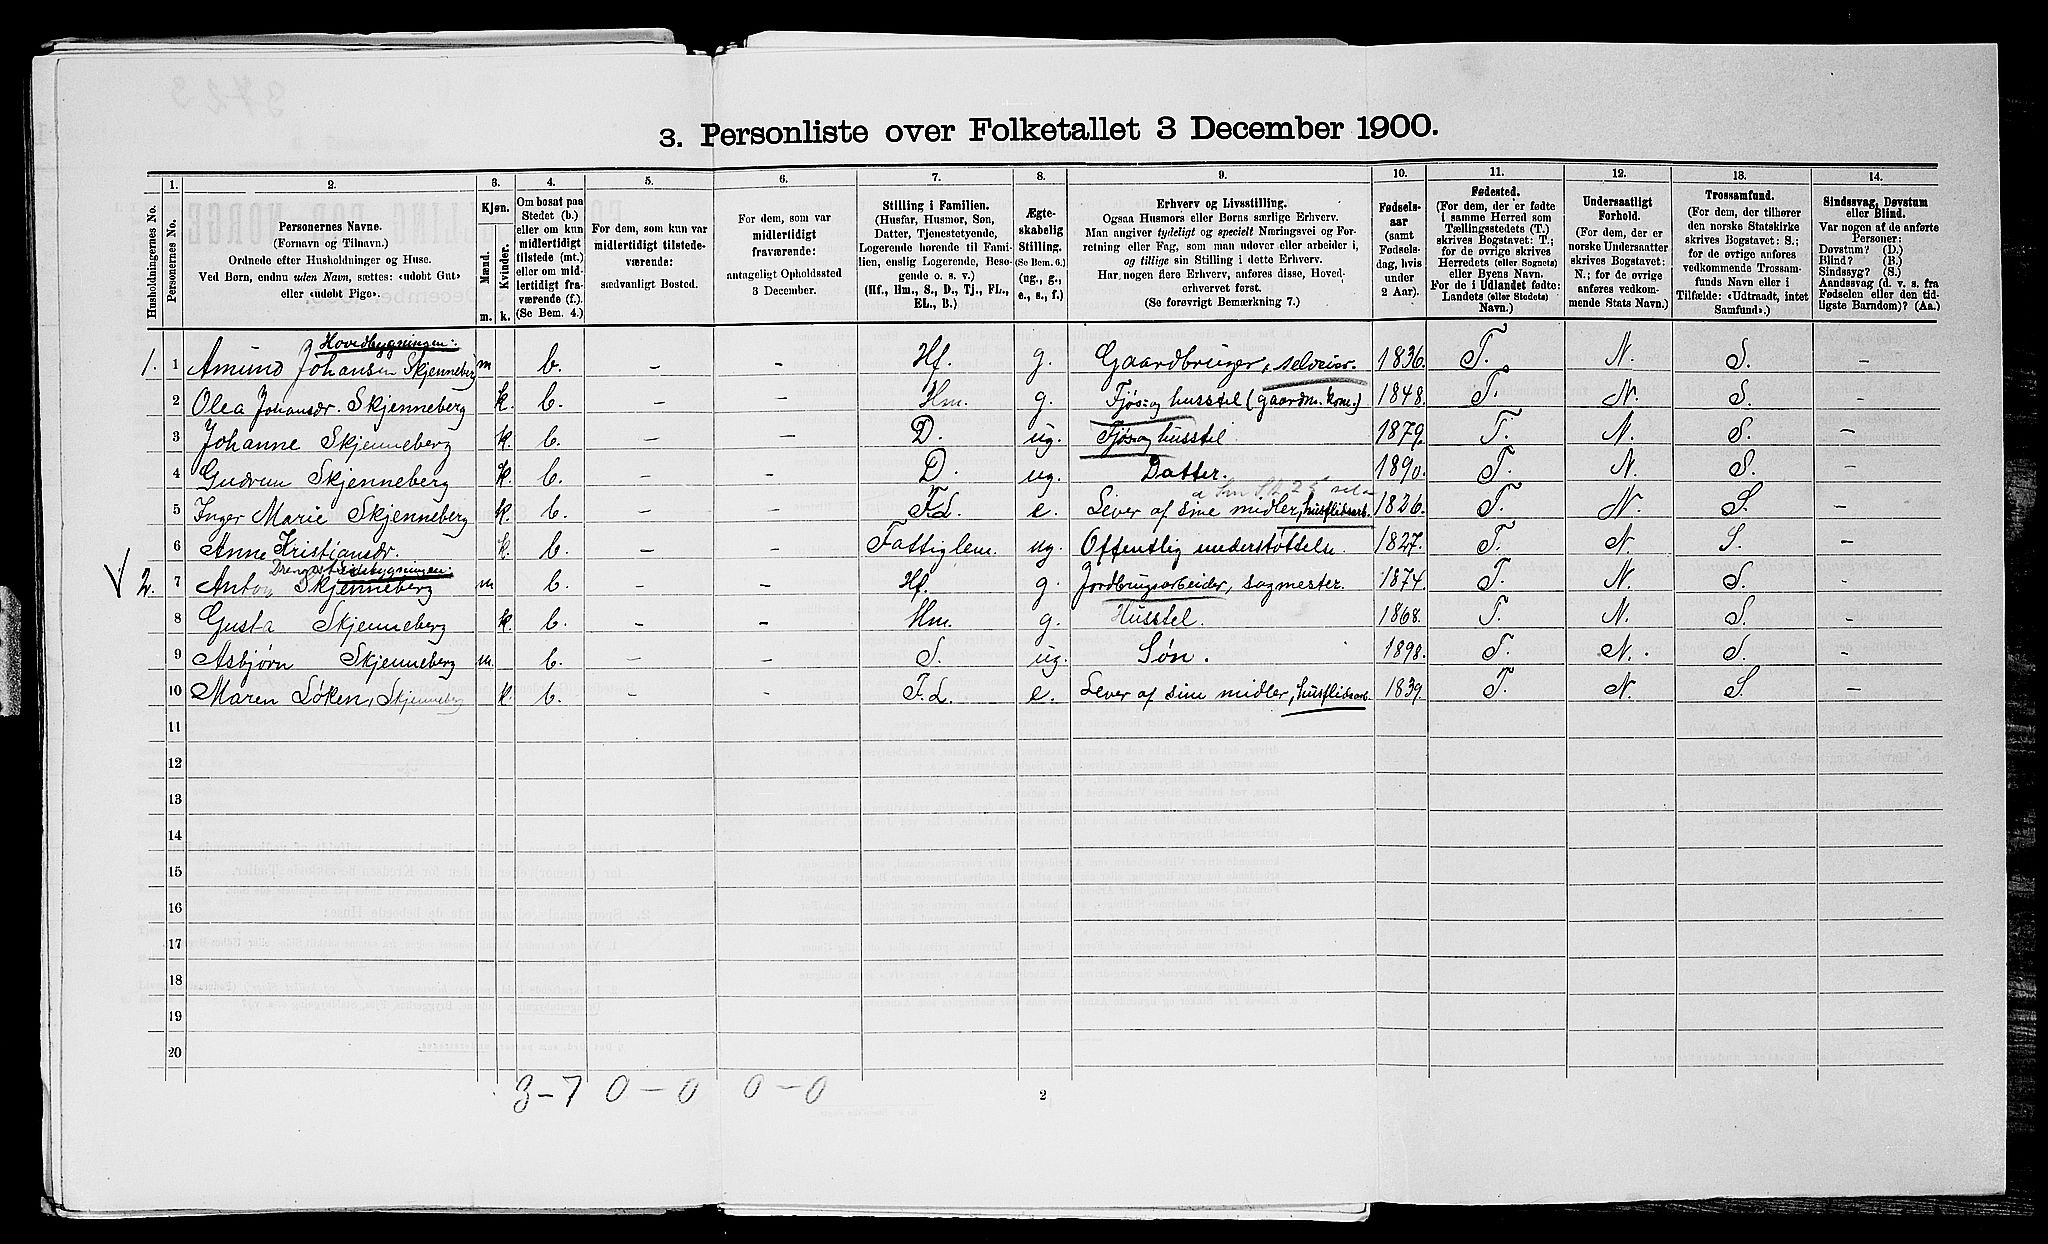 3. Personliste over Folketallet 3 December 1900.
Husholdningernes No.
1. Personernes No.
2. Personernes Navne.
(Fornavn og Tilnavn.)
Ordnede efter Husholdninger og Huse.
Ved Børn, endnu uden Navn, sættes: «udøbt Gut»
eller «udøbt Pige».
3. Kjøn.
Mænd. Kvinder.
m. k.
4. Om bosat paa
Stedet (b.)
eller om kun
midlertidigt
tilstede (mt.)
eller om mid-
lertidigt fra-
værende (f.).
(Se Bem. 4.)
5. For dem, som kun var
midlertidigt tilstede-
værende:
sædvanligt Bosted.
6. For dem, som var
midlertidigt
fraværende:
antageligt Opholdssted
3 December.
7. Stilling i Familien.
(Husfar, Husmor, Søn,
Datter, Tjenestetyende,
Logerende hørende til Fami-
lien, enslig Logerende, Besø-
gende o. s. v.)
(Hf., Hm., S., D., Tj., FL.,
EL., B.)
8. Ægte-
skabelig
Stilling.
(Se Bem. 6.)
(ug., g.,
e., s., f.)
9. Erhverv og Livsstilling.
Ogsaa Husmors eller Børns særlige Erhverv.
Man angiver tydeligt og specielt Næringsvei og For-
retning eller Fag, som man udøver eller arbeider i,
og tillige sin Stilling i dette Erhverv.
Har nogen flere Erhverv, anføres disse, Hoved-
erhvervet først.
(Se forøvrigt Bemærkning 7.)
10. Fødsels-
aar
(samt
Fødsels-
dag, hvis
under
2 Aar).
11. Fødested.
(For dem, der er fødte
i samme Herred som
Tællingsstedets (T.)
skrives Bogstavet: T.;
for de øvrige skrives
Herredets (eller Sognets)
eller Byens Navn.
For de i Udlandet fødte:
Landets (eller Stedets)
Navn.)
12. Undersaatligt
Forhold.
(For dem, der er
norske Undersaatter
skrives Bogstavet:
N.; for de øvrige
anføres vedkom-
mende Stats Navn.)
13. Trossamfund.
(For dem, der tilhører
den norske Statskirke
skrives Bogstavet: S.;
for de øvrige anføres
vedkommende Trossam-
funds Navn eller i
Tilfælde: «Udtraadt, intet
Samfund».)
14. Sindssvag, Døvstum
eller Blind.
Var nogen af de anførte
Personer:
Døvstum? (D.)
Blind? (B.)
Sindssyg? (S.)
Aandssvag (d. v. s. fra
Fødselen eller den tid-
ligste Barndom)? (Aa.)
Hovedbygningen:
1. 1 Amund Johansen Skjenneberg m b. - - Hf. g. Gaardbruger, selveier. 1836. T. N. S. -
2 Olea Johansdr. Skjenneberg k. b. - - Hm. g. Fjøs- og husstel (gaardm. kone.) 1848. T. N. S. -
3 Johanne Skjenneberg k. b. - - D. ug. Fjøs- og husstel. 1879. T. N. S. -
4 Gudrun Skjenneberg k. b. - - D. ug. Datter. 1890. T. N. S. -
5 Inger Marie Skjenneberg k. b. - - F.L. e. Lever af sine midler, husflidsarb. 1826. T. N. S. -
6 Anne Kristiansdr. k. b. - - Fattiglem. ug. Offentlig understøttelse. 1827. T. N. S. -
Drengestuebygningen:
V 2. 7 Anton Skjenneberg m b. - - Hf. g. Jordbrugsarbeider, sagmester. 1874. T. N. S. -
8 Gusta Skjenneberg k. b. - - Hm. g. Husstel. 1868. T. N. S. -
9 Asbjørn Skjenneberg m. b. - - S. ug. Søn. 1898. T. N. S. -
10 Maren Løken, Skjenneberg k. b. - - F.L. e. Lever af sine midler, husflidsarb. 1839. T. N. S. -
11
12
13
14
15
16
17
18
19
20
3-7 0-0 0-0
2